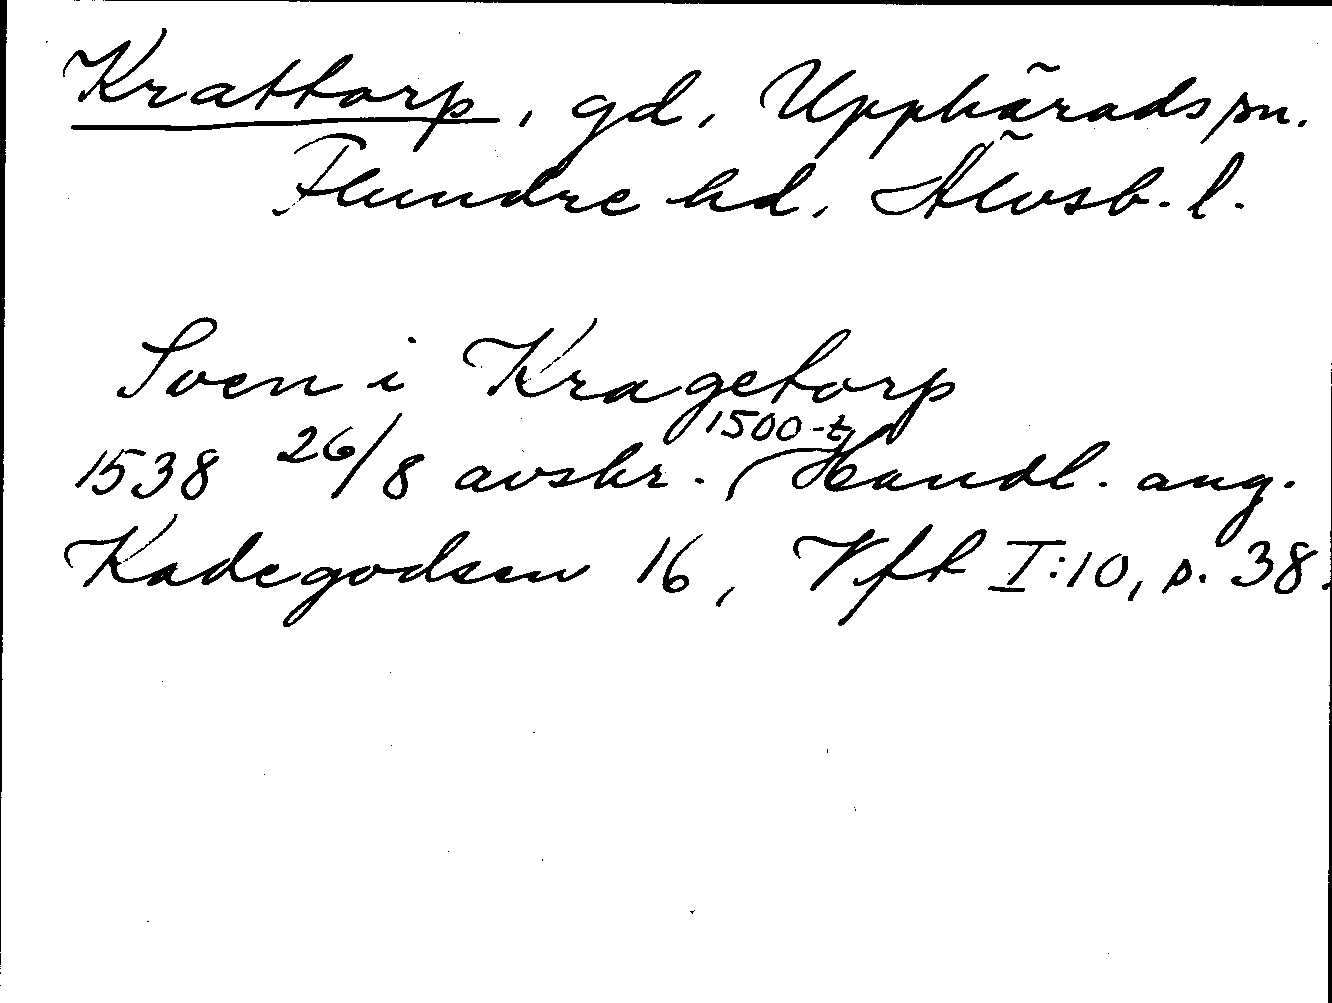 Krattorp, gd, Upphärads sn.
Flundre hd, Älvsb. l.
Sven i Kragetorp
1538 26/8 avskr. 1500-t, Handl. ang.
Kadegodsen 16, Vfk I:10, s. 38.